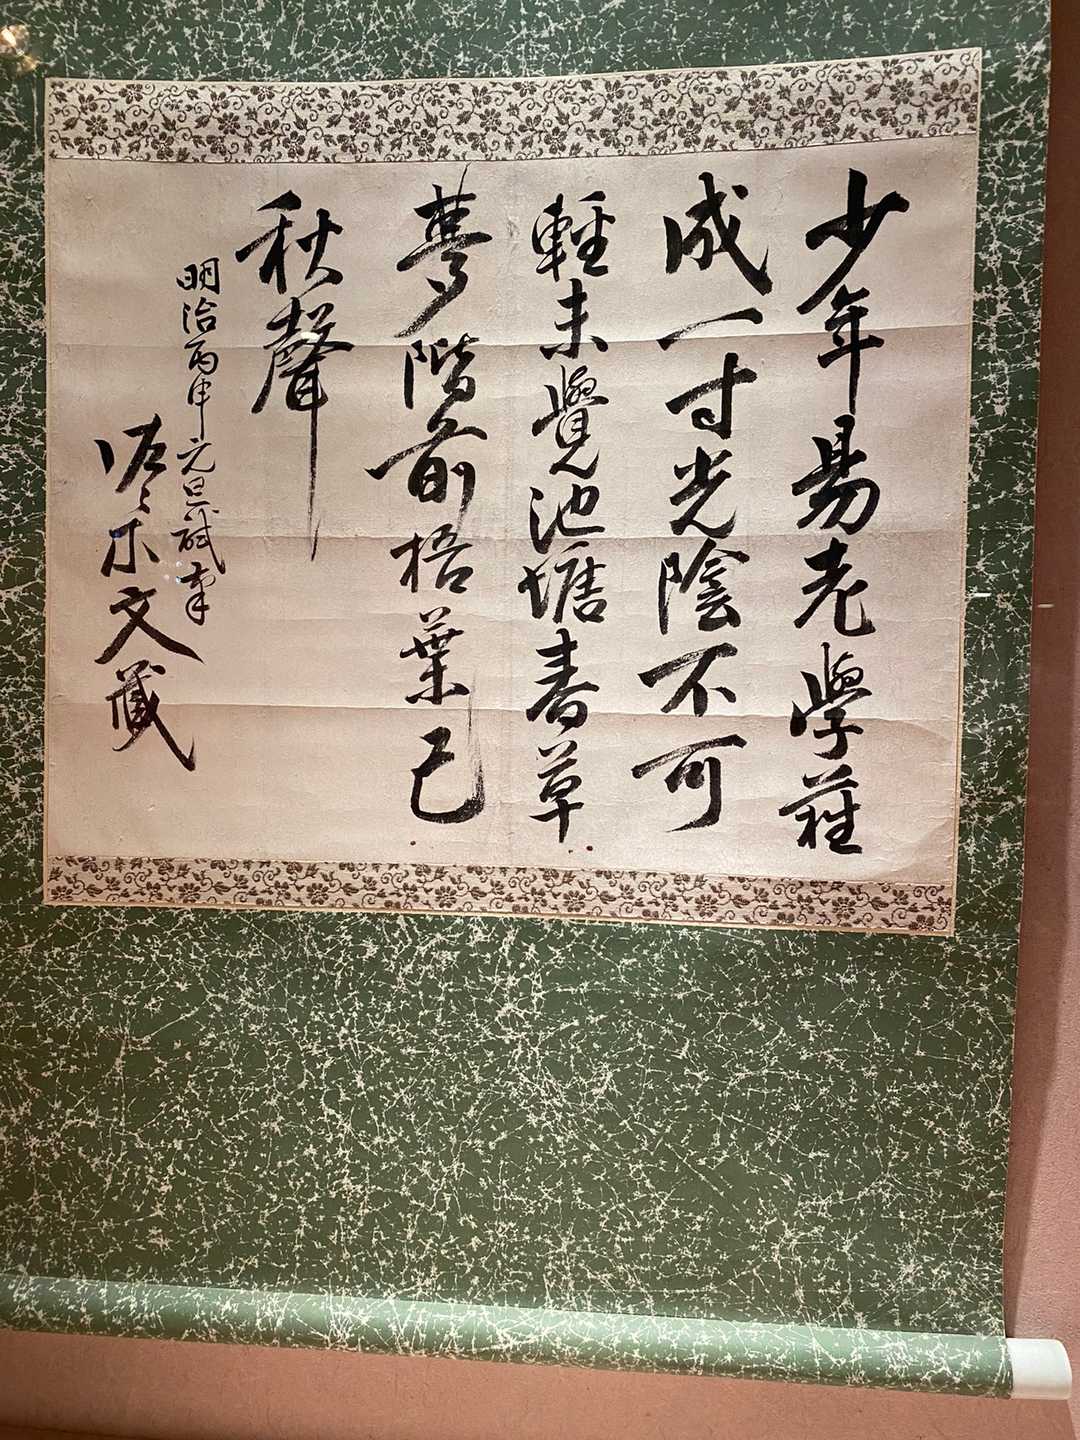 少年易老學難
成一寸光陰不可
輕未覺池塘春草
夢階前梧葉已
秋聲
明治丙申元旦試筆
佐々木文蔵